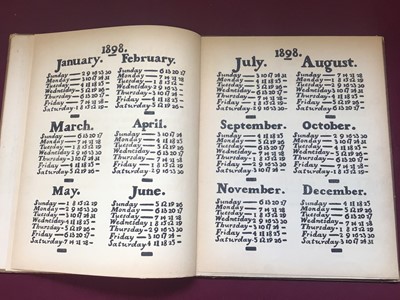 1898.
January.
Sunday — 2 9 16 23 30
Monday — 3 10 17 24 31
Tuesday — 4 11 18 25 —
Wednesday 5 12 19 26 —
Thursday — 6 13 20 27 —
Friday — 7 14 21 28 —
Saturday 1 8 15 22 29
February.
Sunday — 6 13 20 27
Monday — 7 14 21 28
Tuesday — 1 8 15 22
Wednesday 2 9 16 23
Thursday — 3 10 17 24
Friday — 4 11 18 25
Saturday — 5 12 19 26
March.
Sunday — 6 13 20 27
Monday — 7 14 21 28
Tuesday — 1 8 15 22 29
Wednesday 2 9 16 23 30
Thursday — 3 10 17 24 31
Friday — 4 11 18 25 —
Saturday — 5 12 19 26 —
April.
Sunday — 3 10 17 24
Monday — 4 11 18 25 —
Tuesday — 5 12 19 26 —
Wednesday 6 13 20 27
Thursday — 7 14 21 28
Friday — 1 8 15 22 29
Saturday 2 9 16 23 30
May.
Sunday — 1 8 15 22 29
Monday — 2 9 16 23 30
Tuesday — 3 10 17 24 31
Wednesday 4 11 18 25 —
Thursday — 5 12 19 26 —
Friday — 6 13 20 27 —
Saturday — 7 14 21 28 —
June.
Sunday — 5 12 19 26
Monday — 6 13 20 27
Tuesday — 7 14 21 28
Wednesday 1 8 15 22 29
Thursday — 2 9 16 23 30
Friday — 3 10 17 24
Saturday 4 11 18 25 —
1898.
July.
Sunday — 3 10 17 24 31
Monday — 4 11 18 25 —
Tuesday — 5 12 19 26 —
Wednesday 6 13 20 27
Thursday — 7 14 21 28
Friday — 1 8 15 22 29
Saturday — 2 9 16 23 30
August.
Sunday — 7 14 21 28
Monday — 1 8 15 22 29
Tuesday — 2 9 16 23 30
Wednesday 3 10 17 24 31
Thursday — 4 11 18 25 —
Friday — 5 12 19 26 —
Saturday — 6 13 20 27
September.
Sunday — 4 11 18 25 —
Monday — 5 12 19 26 —
Tuesday — 6 13 20 27
Wednesday 7 14 21 28
Thursday — 1 8 15 22 29
Friday — 2 9 16 23 30
Saturday — 3 10 17 24
October.
Sunday — 2 9 16 23 30
Monday — 3 10 17 24 31
Tuesday — 4 11 18 25 —
Wednesday 5 12 19 26 —
Thursday — 6 13 20 27
Friday — 7 14 21 28
Saturday — 1 8 15 22 29
November.
Sunday — 6 13 20 27
Monday — 7 14 21 28
Tuesday — 1 8 15 22 29
Wednesday 2 9 16 23 30
Thursday — 3 10 17 24
Friday — 4 11 18 25 —
Saturday — 5 12 19 26
December.
Sunday — 4 11 18 25 —
Monday — 5 12 19 26 —
Tuesday — 6 13 20 27
Wednesday 7 14 21 28
Thursday — 1 8 15 22 29
Friday — 2 9 16 23 30
Saturday — 3 10 17 24 31